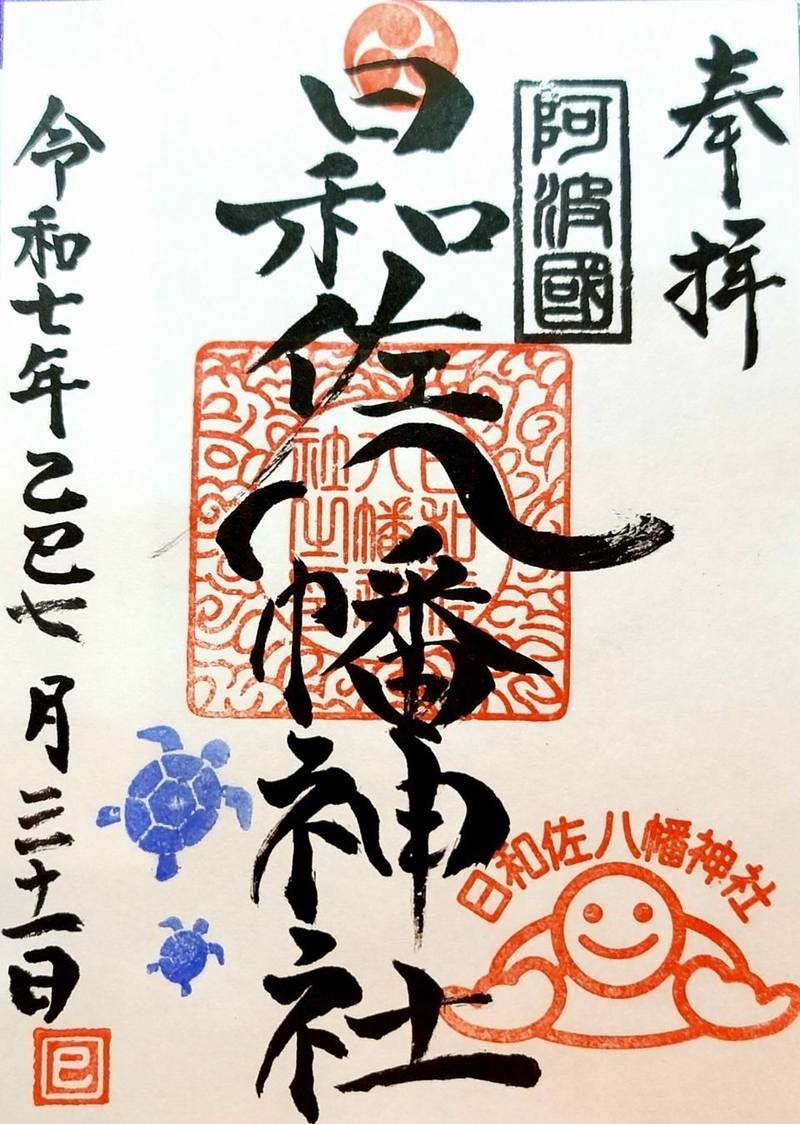 奉拝
阿波國
日和佐八幡神社
日和佐
八幡神
社之
日和佐八幡神社
令和七年乙巳七月三十一日
巳